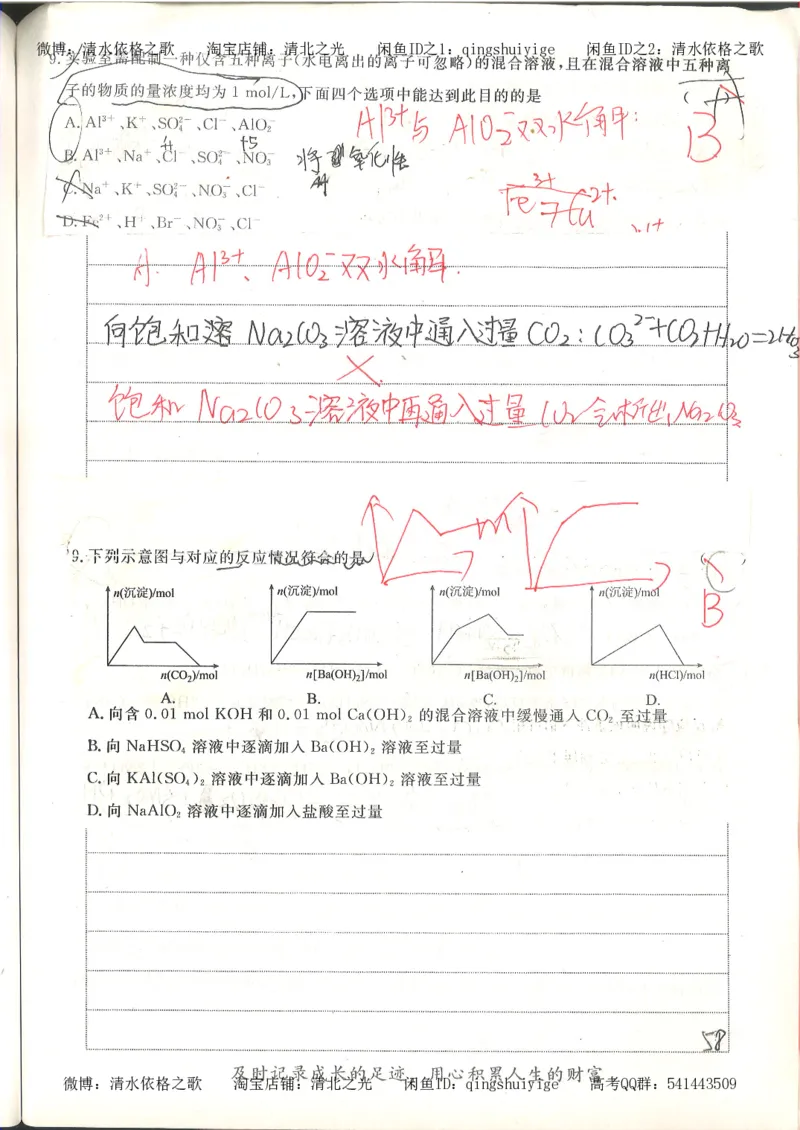 微博:清水依格之歌 淘宝店铺:清北之光 闲鱼ID之1:qingshuiyige 闲鱼ID之2:清水依格之歌
9.实验室需配制一种仅含五种离子(水电离出的离子可忽略)的混合溶液,且在混合溶液中五种离
子的物质的量浓度均为 1 mol/L,下面四个选项中能达到此目的的是 ( )
A. Al³⁺、K⁺、SO₄²⁻、Cl⁻、AlO₂⁻
B. Al³⁺、Na⁺、Cl⁻、SO₄²⁻、NO₃⁻
C. Na⁺、K⁺、SO₄²⁻、NO₃⁻、Cl⁻
D. Fe²⁺、H⁺、Br⁻、NO₃⁻、Cl⁻
Al³⁺与 AlO₂⁻双水解
B
+5
氧化性
Al³⁺、AlO₂⁻双水解.
向饱和溶 Na₂CO₃溶液中通入过量 CO₂: CO₃²⁻+CO₂+H₂O=2HCO₃
×
饱和 Na₂CO₃溶液中再通入过量 CO₂会析出
9.下列示意图与对应的反应情况符合的是 ( )
B
n(沉淀)/mol n(沉淀)/mol n(沉淀)/mol n(沉淀)/mol
n(CO₂)/mol n[Ba(OH)₂]/mol n[Ba(OH)₂]/mol n(HCl)/mol
A. B. C. D.
A. 向含 0.01 mol KOH 和 0.01 mol Ca(OH)₂ 的混合溶液中缓慢通入 CO₂ 至过量
B. 向 NaHSO₄ 溶液中逐滴加入 Ba(OH)₂ 溶液至过量
C. 向 KAl(SO₄)₂ 溶液中逐滴加入 Ba(OH)₂ 溶液至过量
D. 向 NaAlO₂ 溶液中逐滴加入盐酸至过量
58
及时记录成长的足迹 用心积累人生的财富
微博:清水依格之歌 淘宝店铺:清北之光 闲鱼ID:qingshuiyige 高考QQ群:541443509